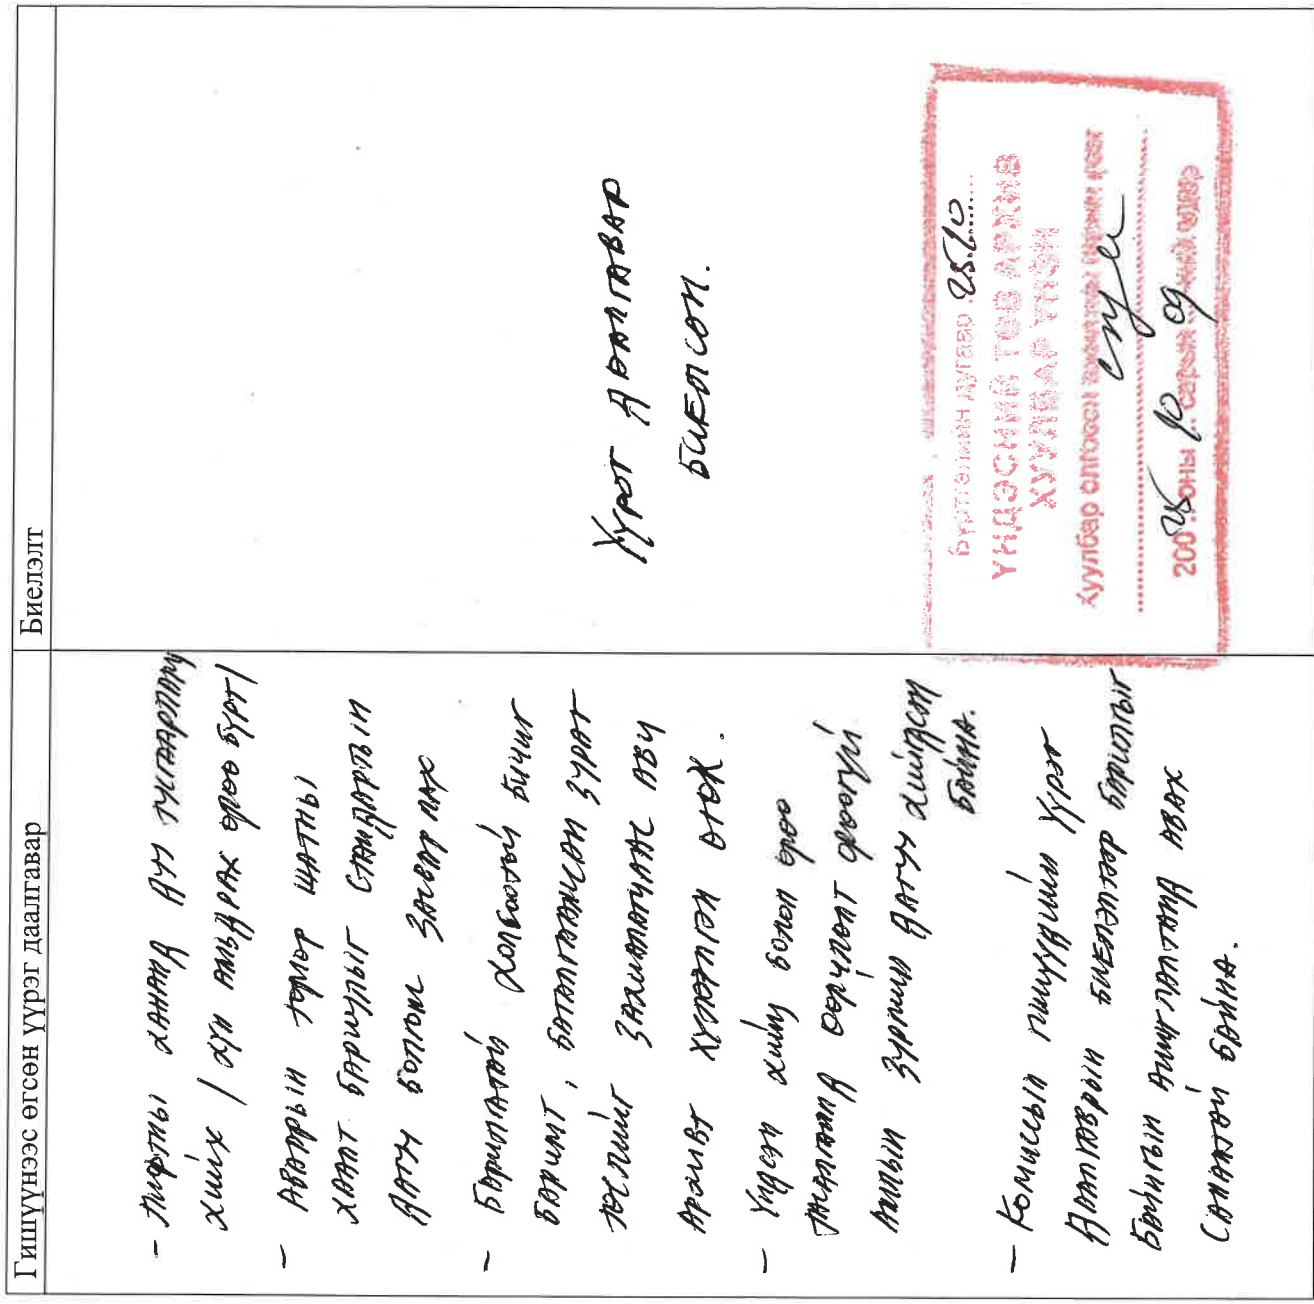 Гишүүнээс өгсөн үүрэг даалгавар
Биелэлт
- Лифтны хананд дуу тусгаарлалт
хийх / хүн амьдрах өрөө бүрт /
- Аваарын төмөр шатны
хаалт бариулыг стандартын
дагуу болгож засварлах
- Барилгатай холбоотой бичиг
баримт, баталгаажсан зураг
төслийг захиалагчаас авч
архивт хүлээлгэн өгөх.
- Үндсэн хийц болон өрөө
тасалгаанд өөрчлөлт ороогүй
ажлын зургийн дагуу хийгдсэн
байна.
- Комиссын гишүүдийн үүрэг
даалгаврын биелэлтээр барилгыг
байнгын ашиглалтанд авах
саналтай байна.
Үүрэг даалгавар
биелсэн.
Бүртгэлийн дугаар 25.10
ҮНДЭСНИЙ ТӨВ АРХИВ
ХУУЛБАР ҮНЭН
Хуулбар олгосон
200 25 оны 10 сарын 09 өдөр